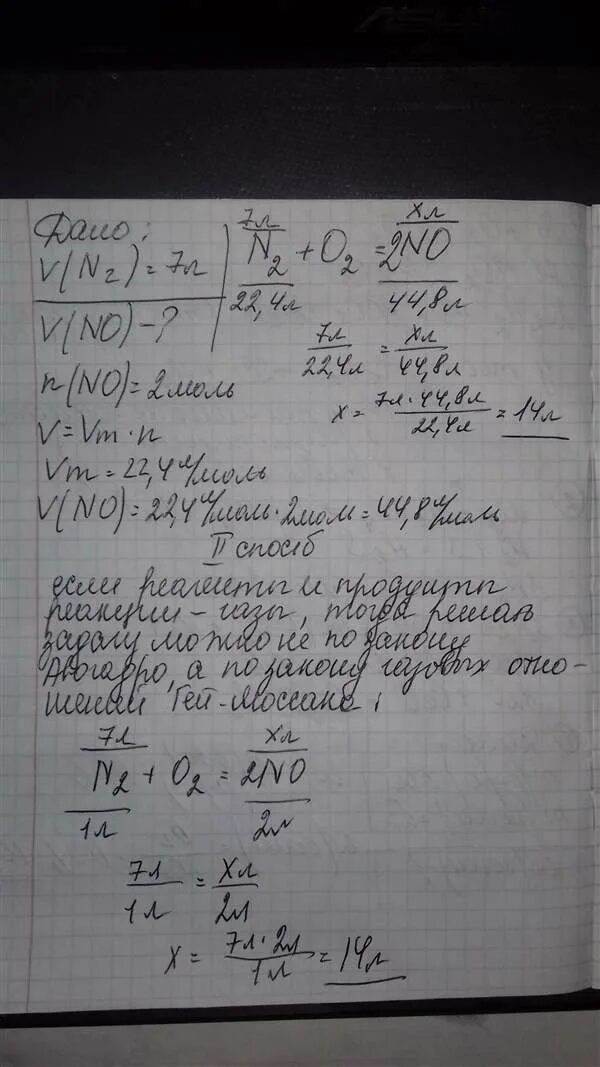 Дано:
V(N₂) = 7л
V(NO) - ?
7л хл
N₂ + O₂ = 2NO
22,4л 44,8л
7л/22,4л = хл/44,8л
х = 7л·44,8л/22,4л = 14л
n(NO) = 2моль
V = Vm · n
Vm = 22,4 л/моль
V(NO) = 22,4 л/моль · 2мол = 44,8 л/моль
II способ
если реагенты и продукты
реакции - газы, тогда решать
задачу можно не по закону
Авогадро, а по закону газовых отно-
шений Гей-Люссака
7л хл
N₂ + O₂ = 2NO
1л 2л
7л/1л = хл/2л
х = 7л·2л/1л = 14л